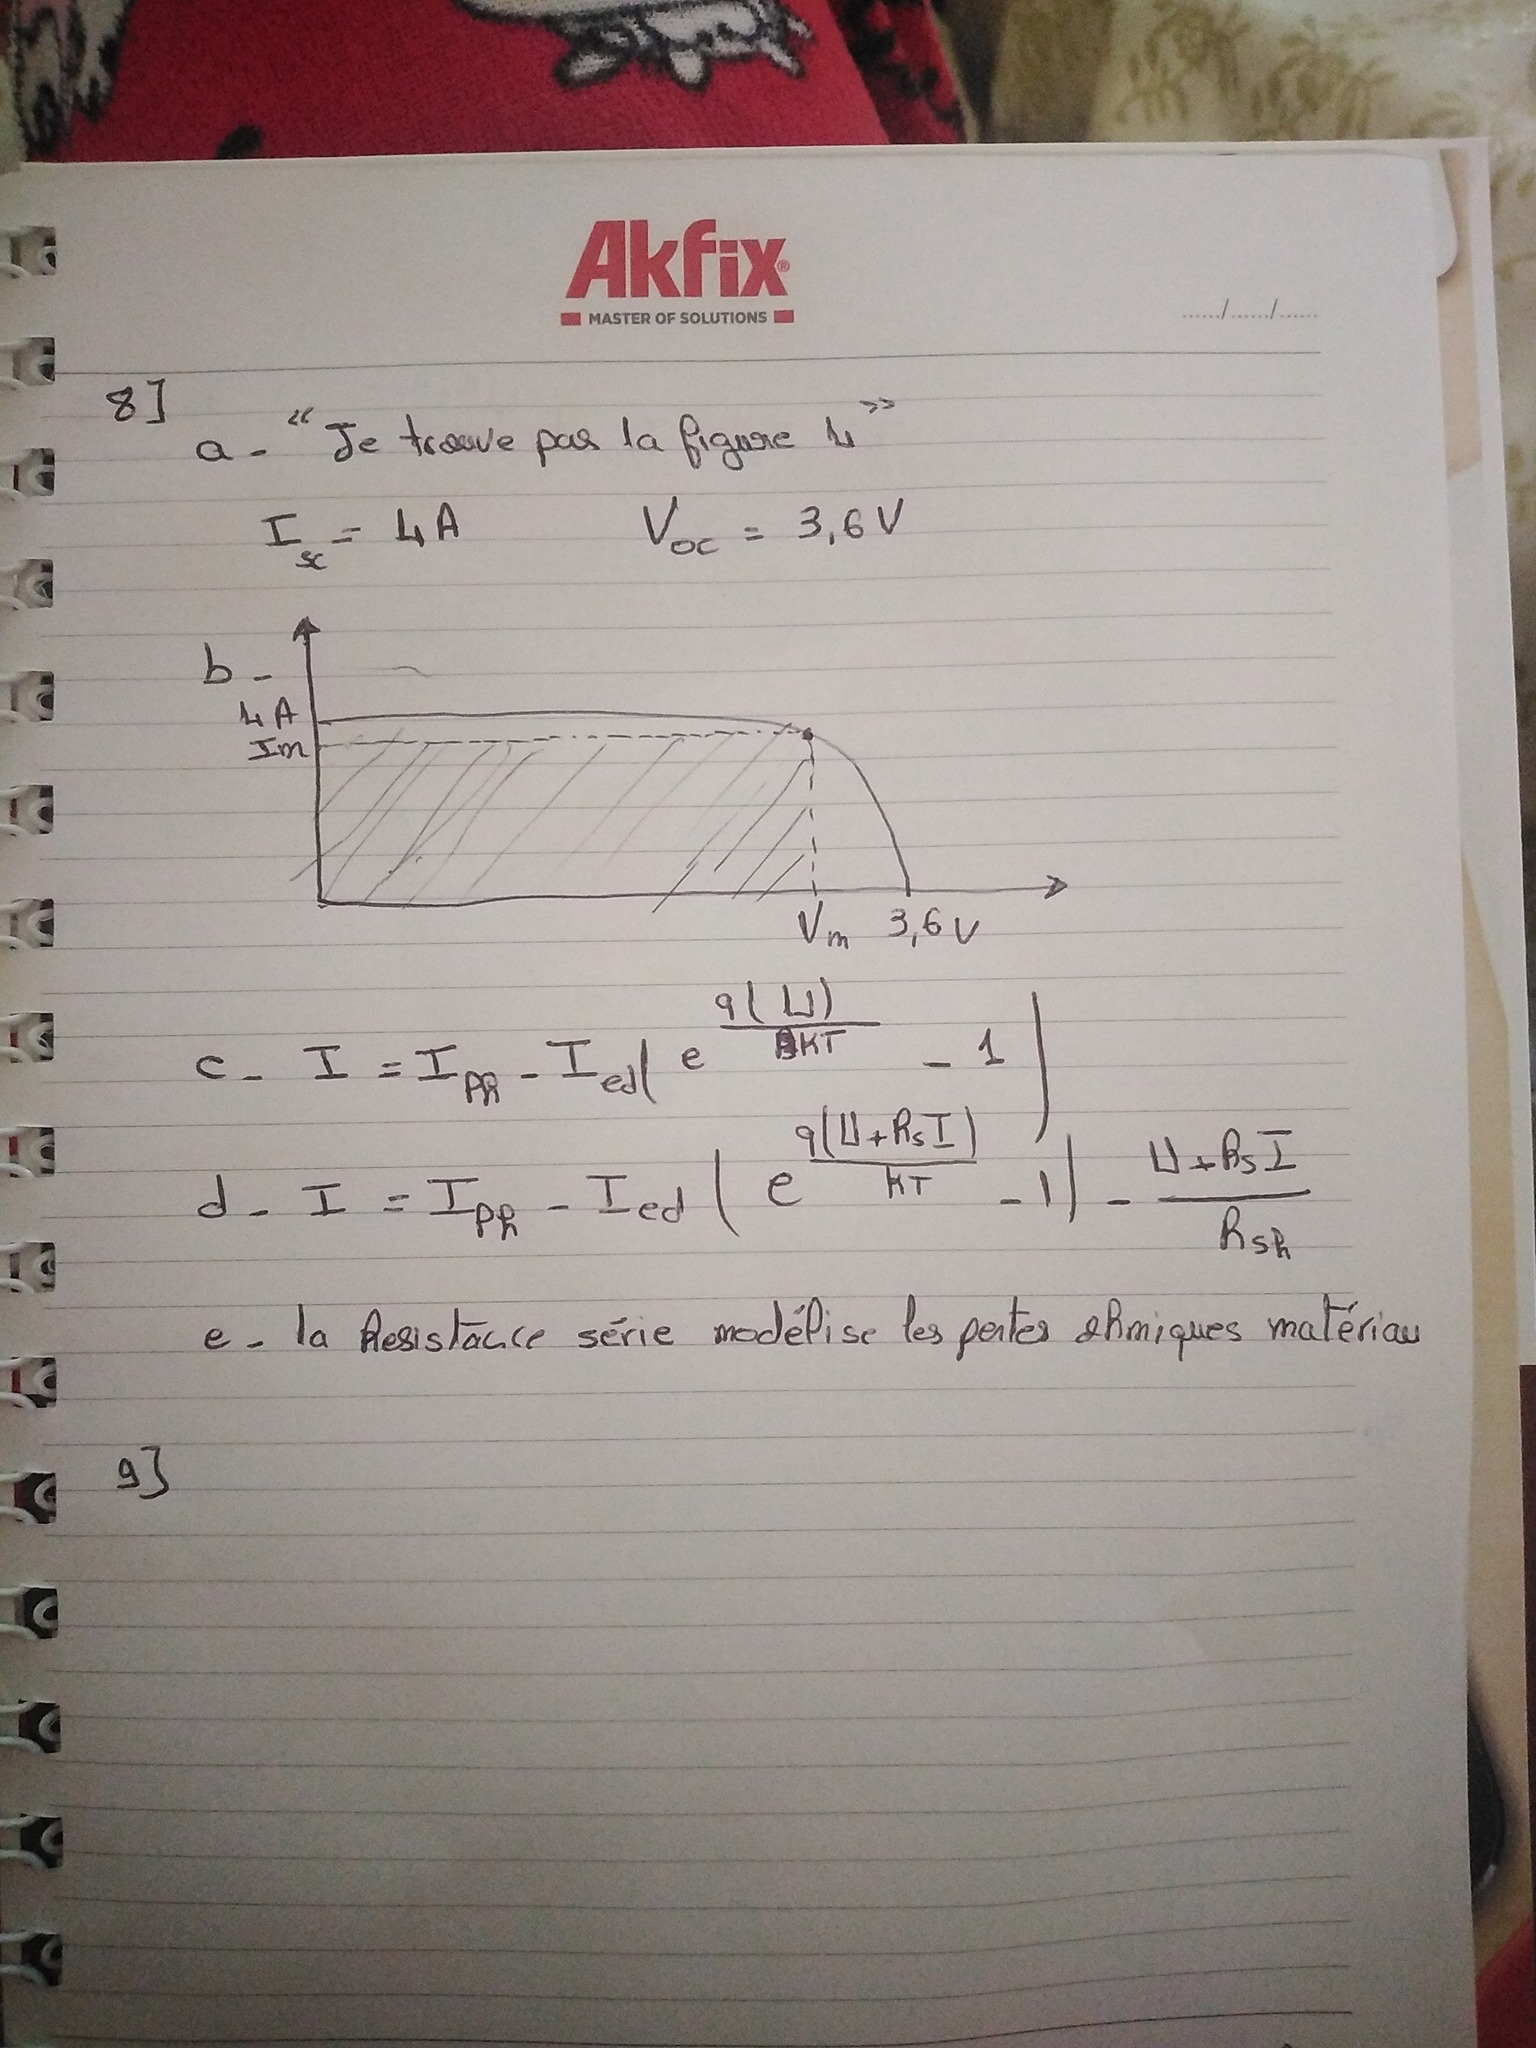 Akfix®
MASTER OF SOLUTIONS
....../....../......
8]
a - "Je trouve par la figure 4"
I_sc = 4A V_oc = 3,6 V
b -
4A
Im
V_m 3,6 V
c - I = I_ph - I_ed( e^(q(U)/KT) - 1)
d - I = I_ph - I_ed ( e^(q(U+R_s I)/KT) - 1) - (U+R_s I)/R_sh
e - la Resistance série modélise les pertes ohmiques matériau
9]